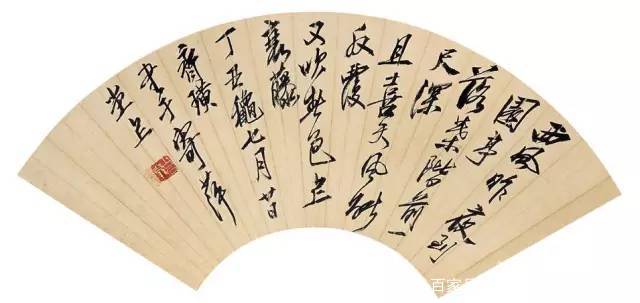 西風
園亭昨夜到
落葉階前一
尺深
且喜天風能
反覆
又吹春色上
藤
丁丑秋七月廿日
齊璜
書于寄萍
堂上
百家号